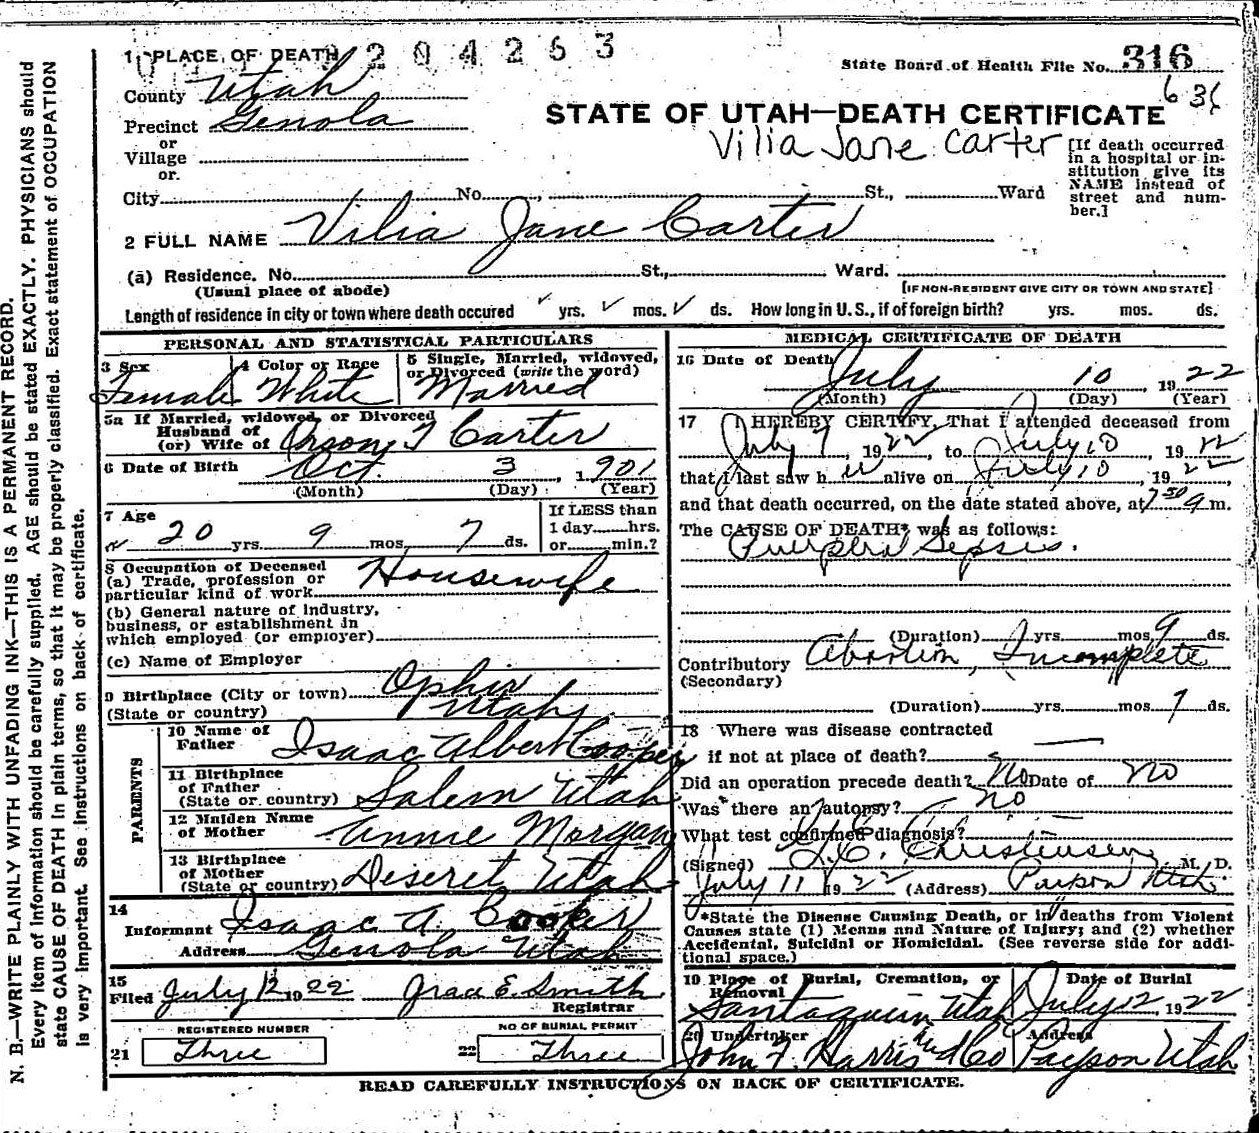 204263
1 PLACE OF DEATH
State Board of Health File No. 316
County Utah
Precinct Genola
STATE OF UTAH—DEATH CERTIFICATE
or
Village
or.
Vilia Jane Carter
[If death occurred in a hospital or institution give its NAME instead of street and number.]
City No. St., Ward
2 FULL NAME Vilia Jane Carter
(a) Residence. No. St., Ward.
(Usual place of abode) [IF NON-RESIDENT GIVE CITY OR TOWN AND STATE]
Length of residence in city or town where death occured ✓ yrs. ✓ mos. ✓ ds. How long in U. S., if of foreign birth? yrs. mos. ds.
PERSONAL AND STATISTICAL PARTICULARS
3 Sex Female
4 Color or Race White
5 Single, Married, widowed, or Divorced (write the word) Married
5a If Married, widowed, or Divorced
Husband of
(or) Wife of Orson T Carter
6 Date of Birth Oct. 3, 1901
(Month) (Day) (Year)
7 Age 20 yrs. 9 mos. 7 ds.
If LESS than
1 day hrs.
or min.?
8 Occupation of Deceased
(a) Trade, profession or
particular kind of work Housewife
(b) General nature of industry,
business, or establishment in
which employed (or employer)
(c) Name of Employer
9 Birthplace (City or town) Ophir
(State or country) Utah
PARENTS
10 Name of
Father Isaac Albert Cooper
11 Birthplace
of Father
(State or country) Salem Utah
12 Maiden Name
of Mother Annie Morgan
13 Birthplace
of Mother
(State or country) Deseret Utah
14
Informant Isaac A. Cooper
Address Genola Utah
15
Filed July 12 1922 Grace E. Smith
Registrar
REGISTERED NUMBER
21 Three
NO OF BURIAL PERMIT
22 Three
MEDICAL CERTIFICATE OF DEATH
16 Date of Death July 10 1922
(Month) (Day) (Year)
17 I HEREBY CERTIFY, That I attended deceased from
July 7, 1922, to July 10, 1922
that I last saw h alive on July 10, 1922,
and that death occurred, on the date stated above, at 7 50 m.
The CAUSE OF DEATH* was as follows:
Puerperal Sepsis.
(Duration) yrs. mos. 9 ds.
Contributory Abortion, Incomplete
(Secondary)
(Duration) yrs. mos. 7 ds.
18 Where was disease contracted
if not at place of death?
Did an operation precede death? No Date of No
Was there an autopsy? No
What test confirmed diagnosis?
(Signed) Christensen, M. D.
July 11 1922 (Address) Payson Utah
*State the Disease Causing Death, or in deaths from Violent
Causes state (1) Means and Nature of Injury; and (2) whether
Accidental, Suicidal or Homicidal. (See reverse side for addi-
tional space.)
19 Place of Burial, Cremation, or
Removal Date of Burial
Santaquin Utah July 12, 1922
20 Undertaker Address
John T. Harris and Co Payson Utah
READ CAREFULLY INSTRUCTIONS ON BACK OF CERTIFICATE.
N. B.—WRITE PLAINLY WITH UNFADING INK—THIS IS A PERMANENT RECORD.
Every item of information should be carefully supplied. AGE should be stated EXACTLY. PHYSICIANS should
state CAUSE OF DEATH in plain terms, so that it may be properly classified. Exact statement of OCCUPATION
is very important. See instructions on back of certificate.